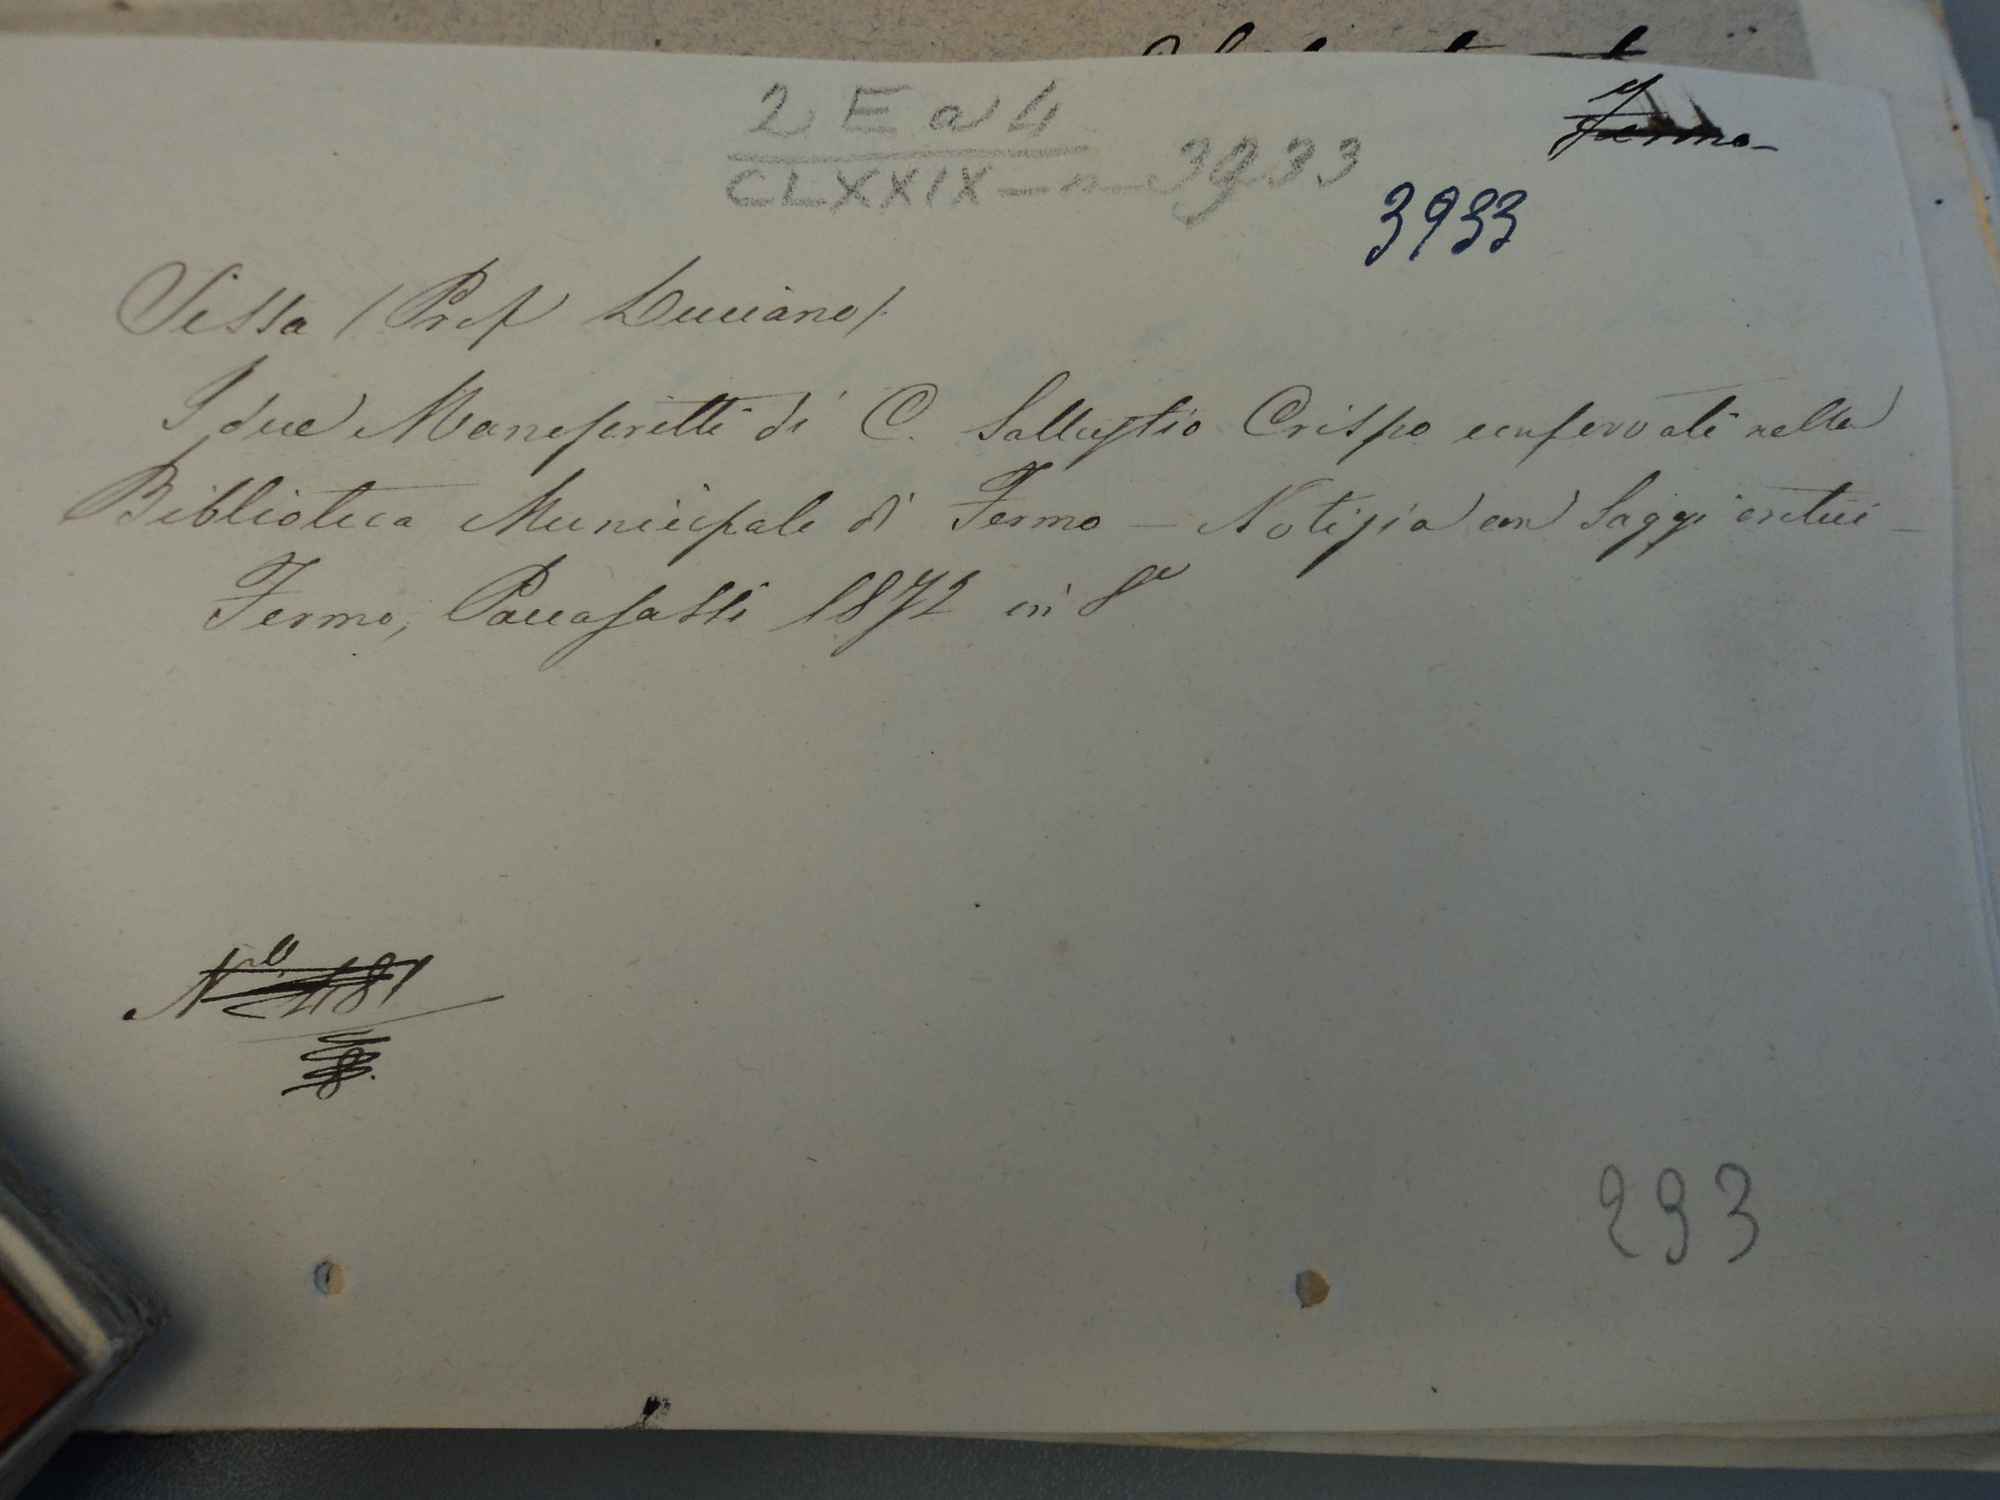 2 E a 4
CLXXIX - n 3933
Fermo
3933
Sissa (Prof Luciano).
I due Manoscritti di C. Sallustio Crispo conservati nella
Biblioteca Municipale di Fermo - Notizia con Saggi critici -
Fermo, Paccasassi 1872 in 8°
N.ro 481
293